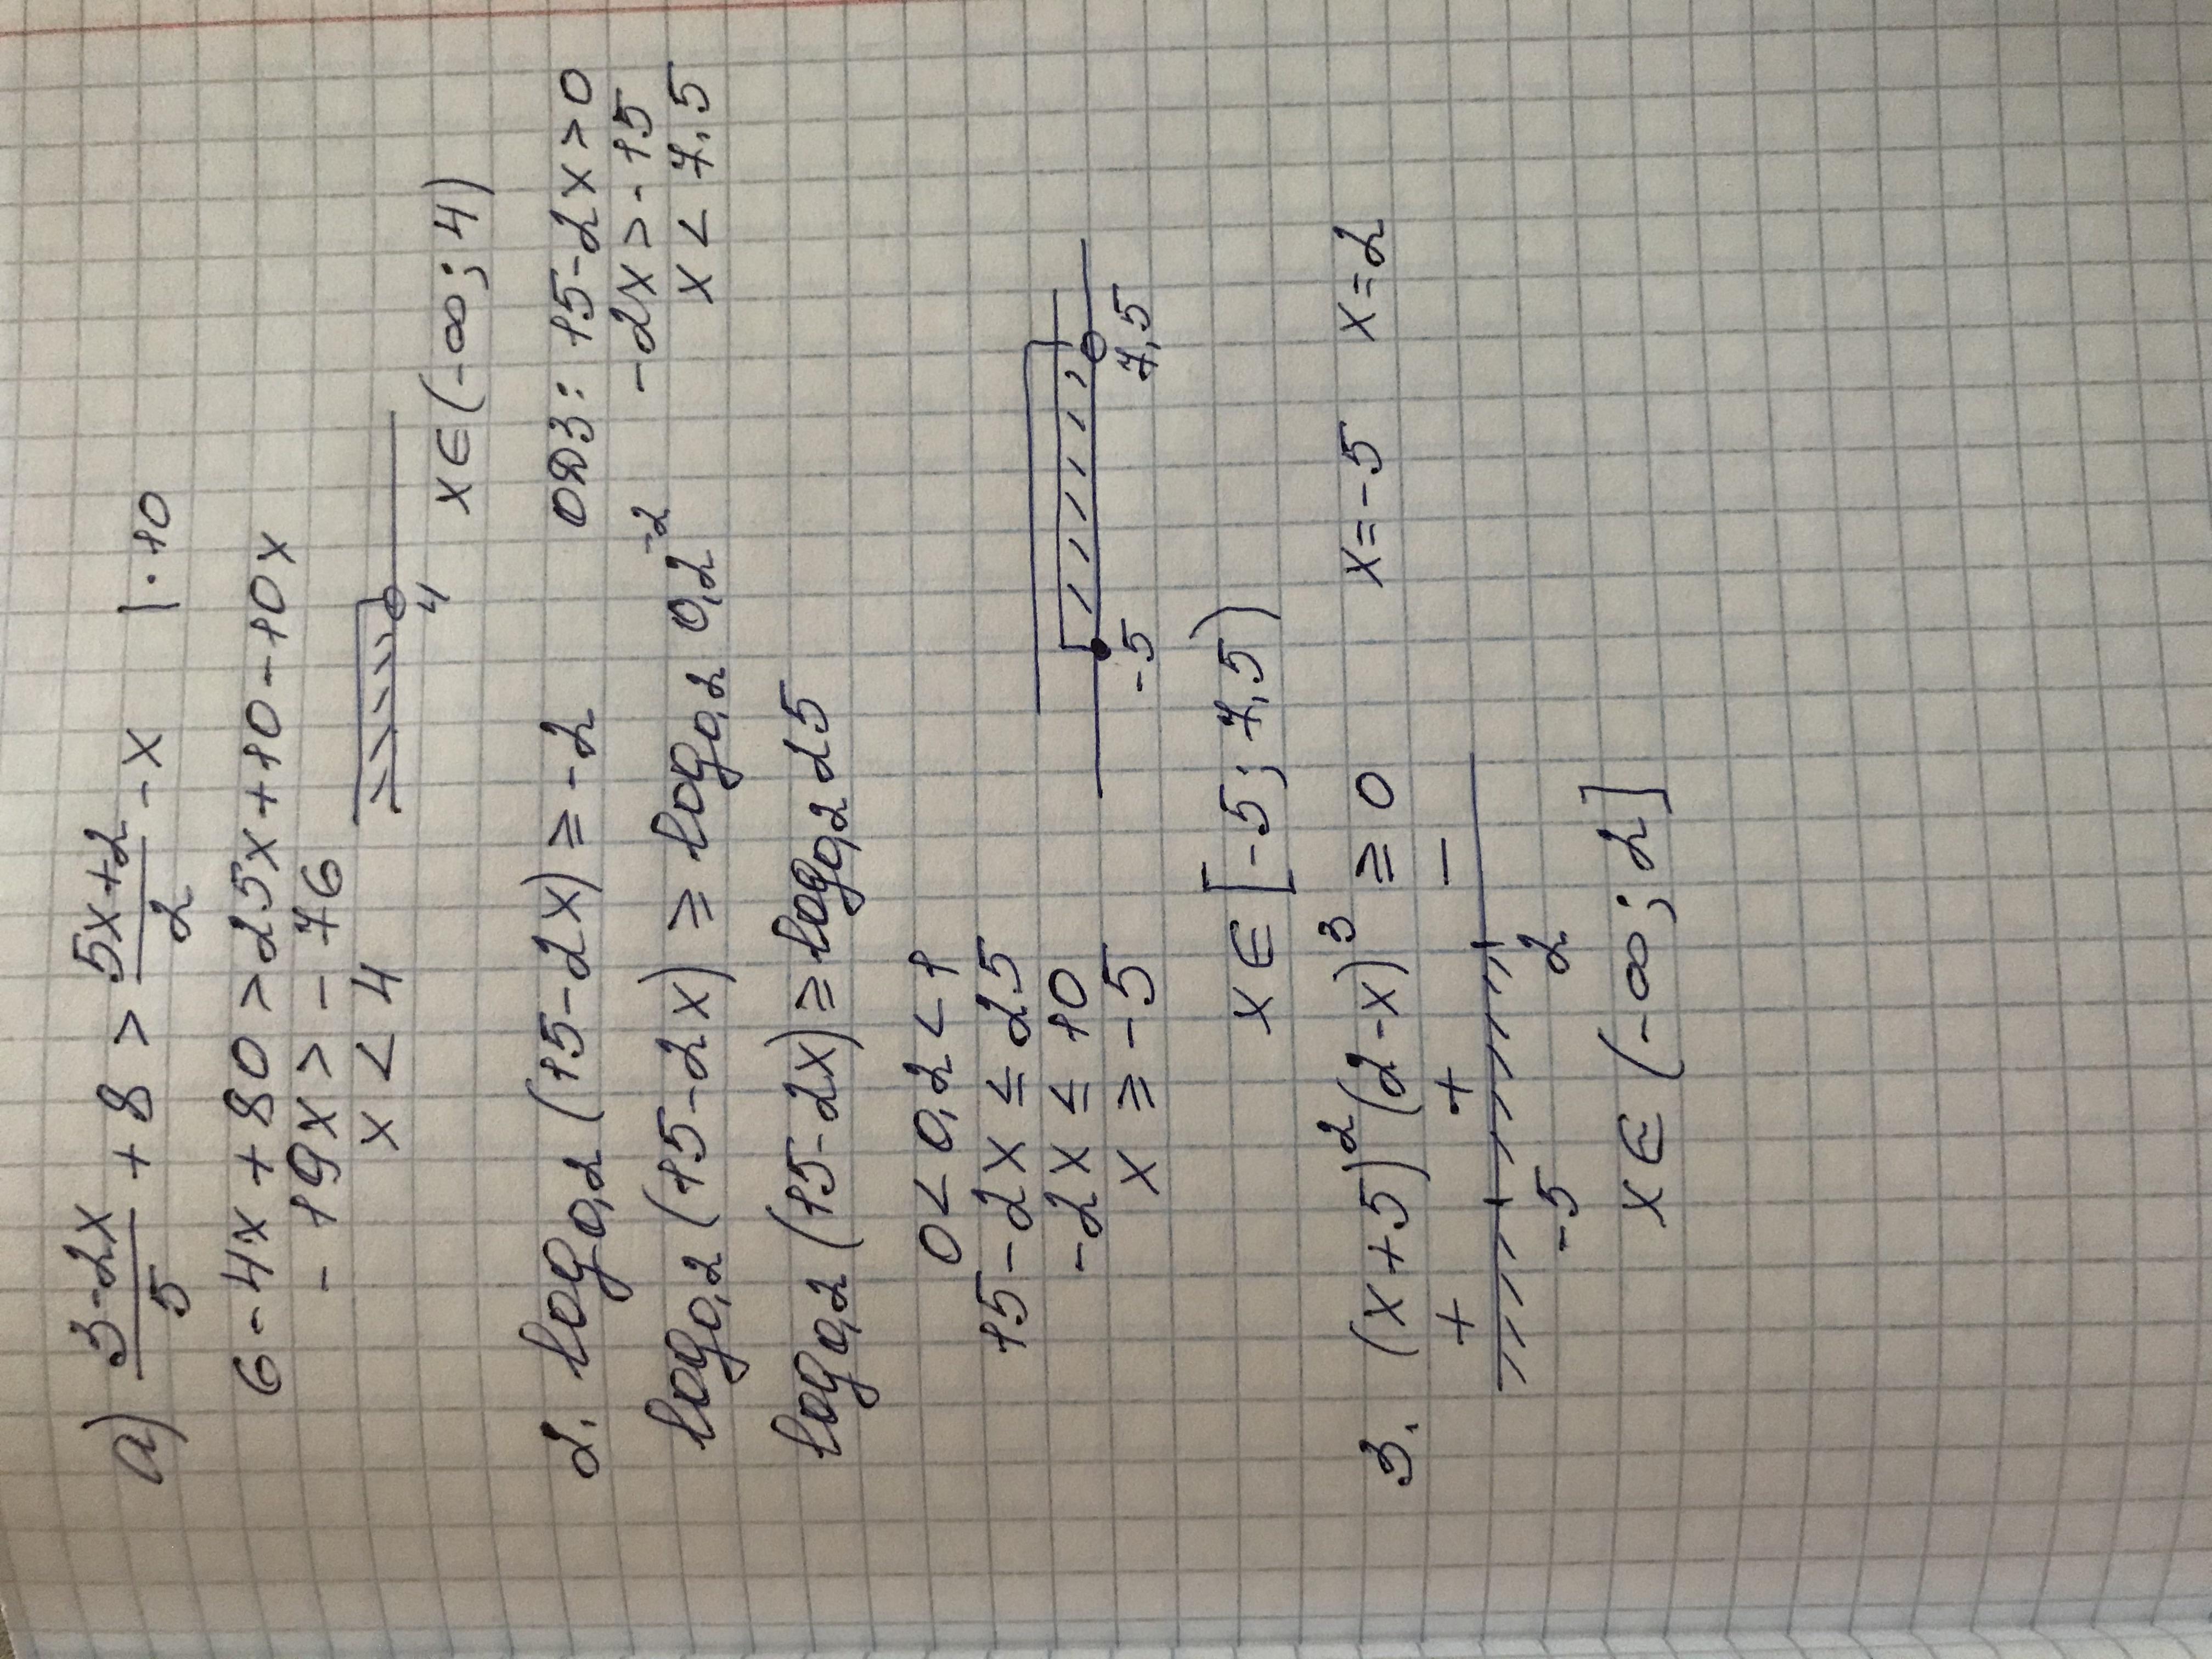 а) (3-2x)/5 + 8 > (5x+2)/2 - x |·10
6-4x+80>25x+10-10x
-19x>-76
x<4
4
x∈(-∞;4)
2. log₀,₂(15-2x)≥-2 ОДЗ: 15-2x>0
-2x>-15
log₀,₂(15-2x)≥log₀,₂ 0,2⁻² x<7,5
log₀,₂(15-2x)≥log₀,₂ 25
0<0,2<1
15-2x≤25
-2x≤10
x≥-5
-5 7,5
x∈[-5;7,5)
3. (x+5)²(2-x)³≥0 x=-5 x=2
+ + -
-5 2
x∈(-∞;2]